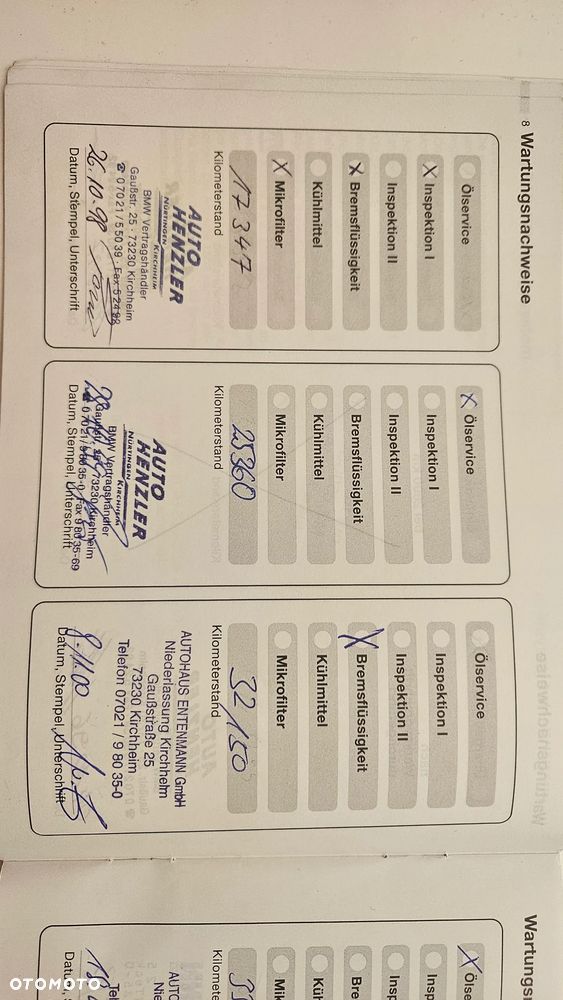 8 Wartungsnachweise
Ölservice
X Inspektion I
Inspektion II
X Bremsflüssigkeit
Kühlmittel
X Mikrofilter
Kilometerstand
17347
AUTO
HENZLER
NÜRTINGEN KIRCHHEIM
BMW Vertragshändler
Gaußstr. 25 · 73230 Kirchheim
☎ 07021/55039 · Fax 52498
26.10.98
Datum, Stempel, Unterschrift
X Ölservice
Inspektion I
Inspektion II
Bremsflüssigkeit
Kühlmittel
Mikrofilter
Kilometerstand
25360
AUTO
HENZLER
NÜRTINGEN KIRCHHEIM
BMW Vertragshändler
Gaußstr. 25 · 73230 Kirchheim
☎ 07021/9 80 35-0 Fax 9 80 35-69
Datum, Stempel, Unterschrift
Ölservice
Inspektion I
Inspektion II
X Bremsflüssigkeit
Kühlmittel
Mikrofilter
Kilometerstand
32150
AUTOHAUS ENTENMANN GmbH
Niederlassung Kirchheim
Gaußstraße 25
73230 Kirchheim
Telefon 07021 / 9 80 35-0
8.11.00
Datum, Stempel, Unterschrift
Wartungs
X Ölse
Insp
Insp
Bre
Küh
Mik
Kilome
AUTO
Nie
Te
Datu
OTOMOTO